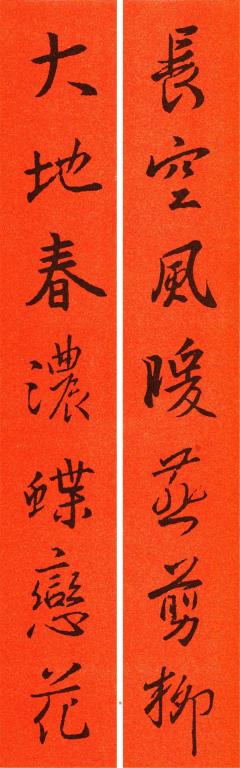 長空風暖燕剪柳
大地春濃蝶戀花